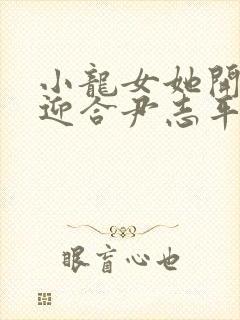 小龍女她開
迎合尹志平
眼盲心也